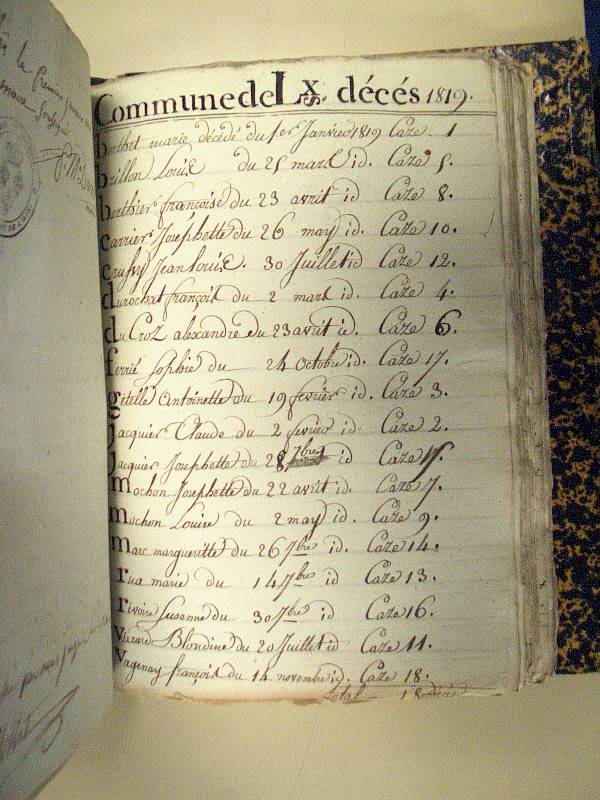 Commune de Lxs. décés 1819.
berthet marie décédé du 1er Janvier 1819 Caze. 1
brillon Louise du 25 mars id. Caze 5.
berthier françoise du 23 avril id Caze 8.
Carrier Josephette du 26 may id. Caze 10.
Jean Louise. 30 Juillet id Caze 12.
durochat françois du 2 mars id. Caze 4.
du Croz alexandre du 23 avril id. Caze 6.
ferrié Sophie du 24 octobre id. Caze 17.
gételle Antoinette du 19 fevrier id. Caze 3.
Jacquier Claude du 2 fevrier id. Caze 2.
Jacquier Josephette du 28 7bre id Caze 15.
mochon Josephette du 22 avril id. Caze 7.
mochon Louise du 2 may id. Caze 9.
marc margueritte du 26 7bre id. Caze 14.
rua marie du 14 7bre id Caze 13.
rivoire Susanne du 30 7bre id Caze 16.
Blondine du 20 Juillet id Caze 11.
Vagenay françois du 14 novembre id. Caze 18.
total 18 décés